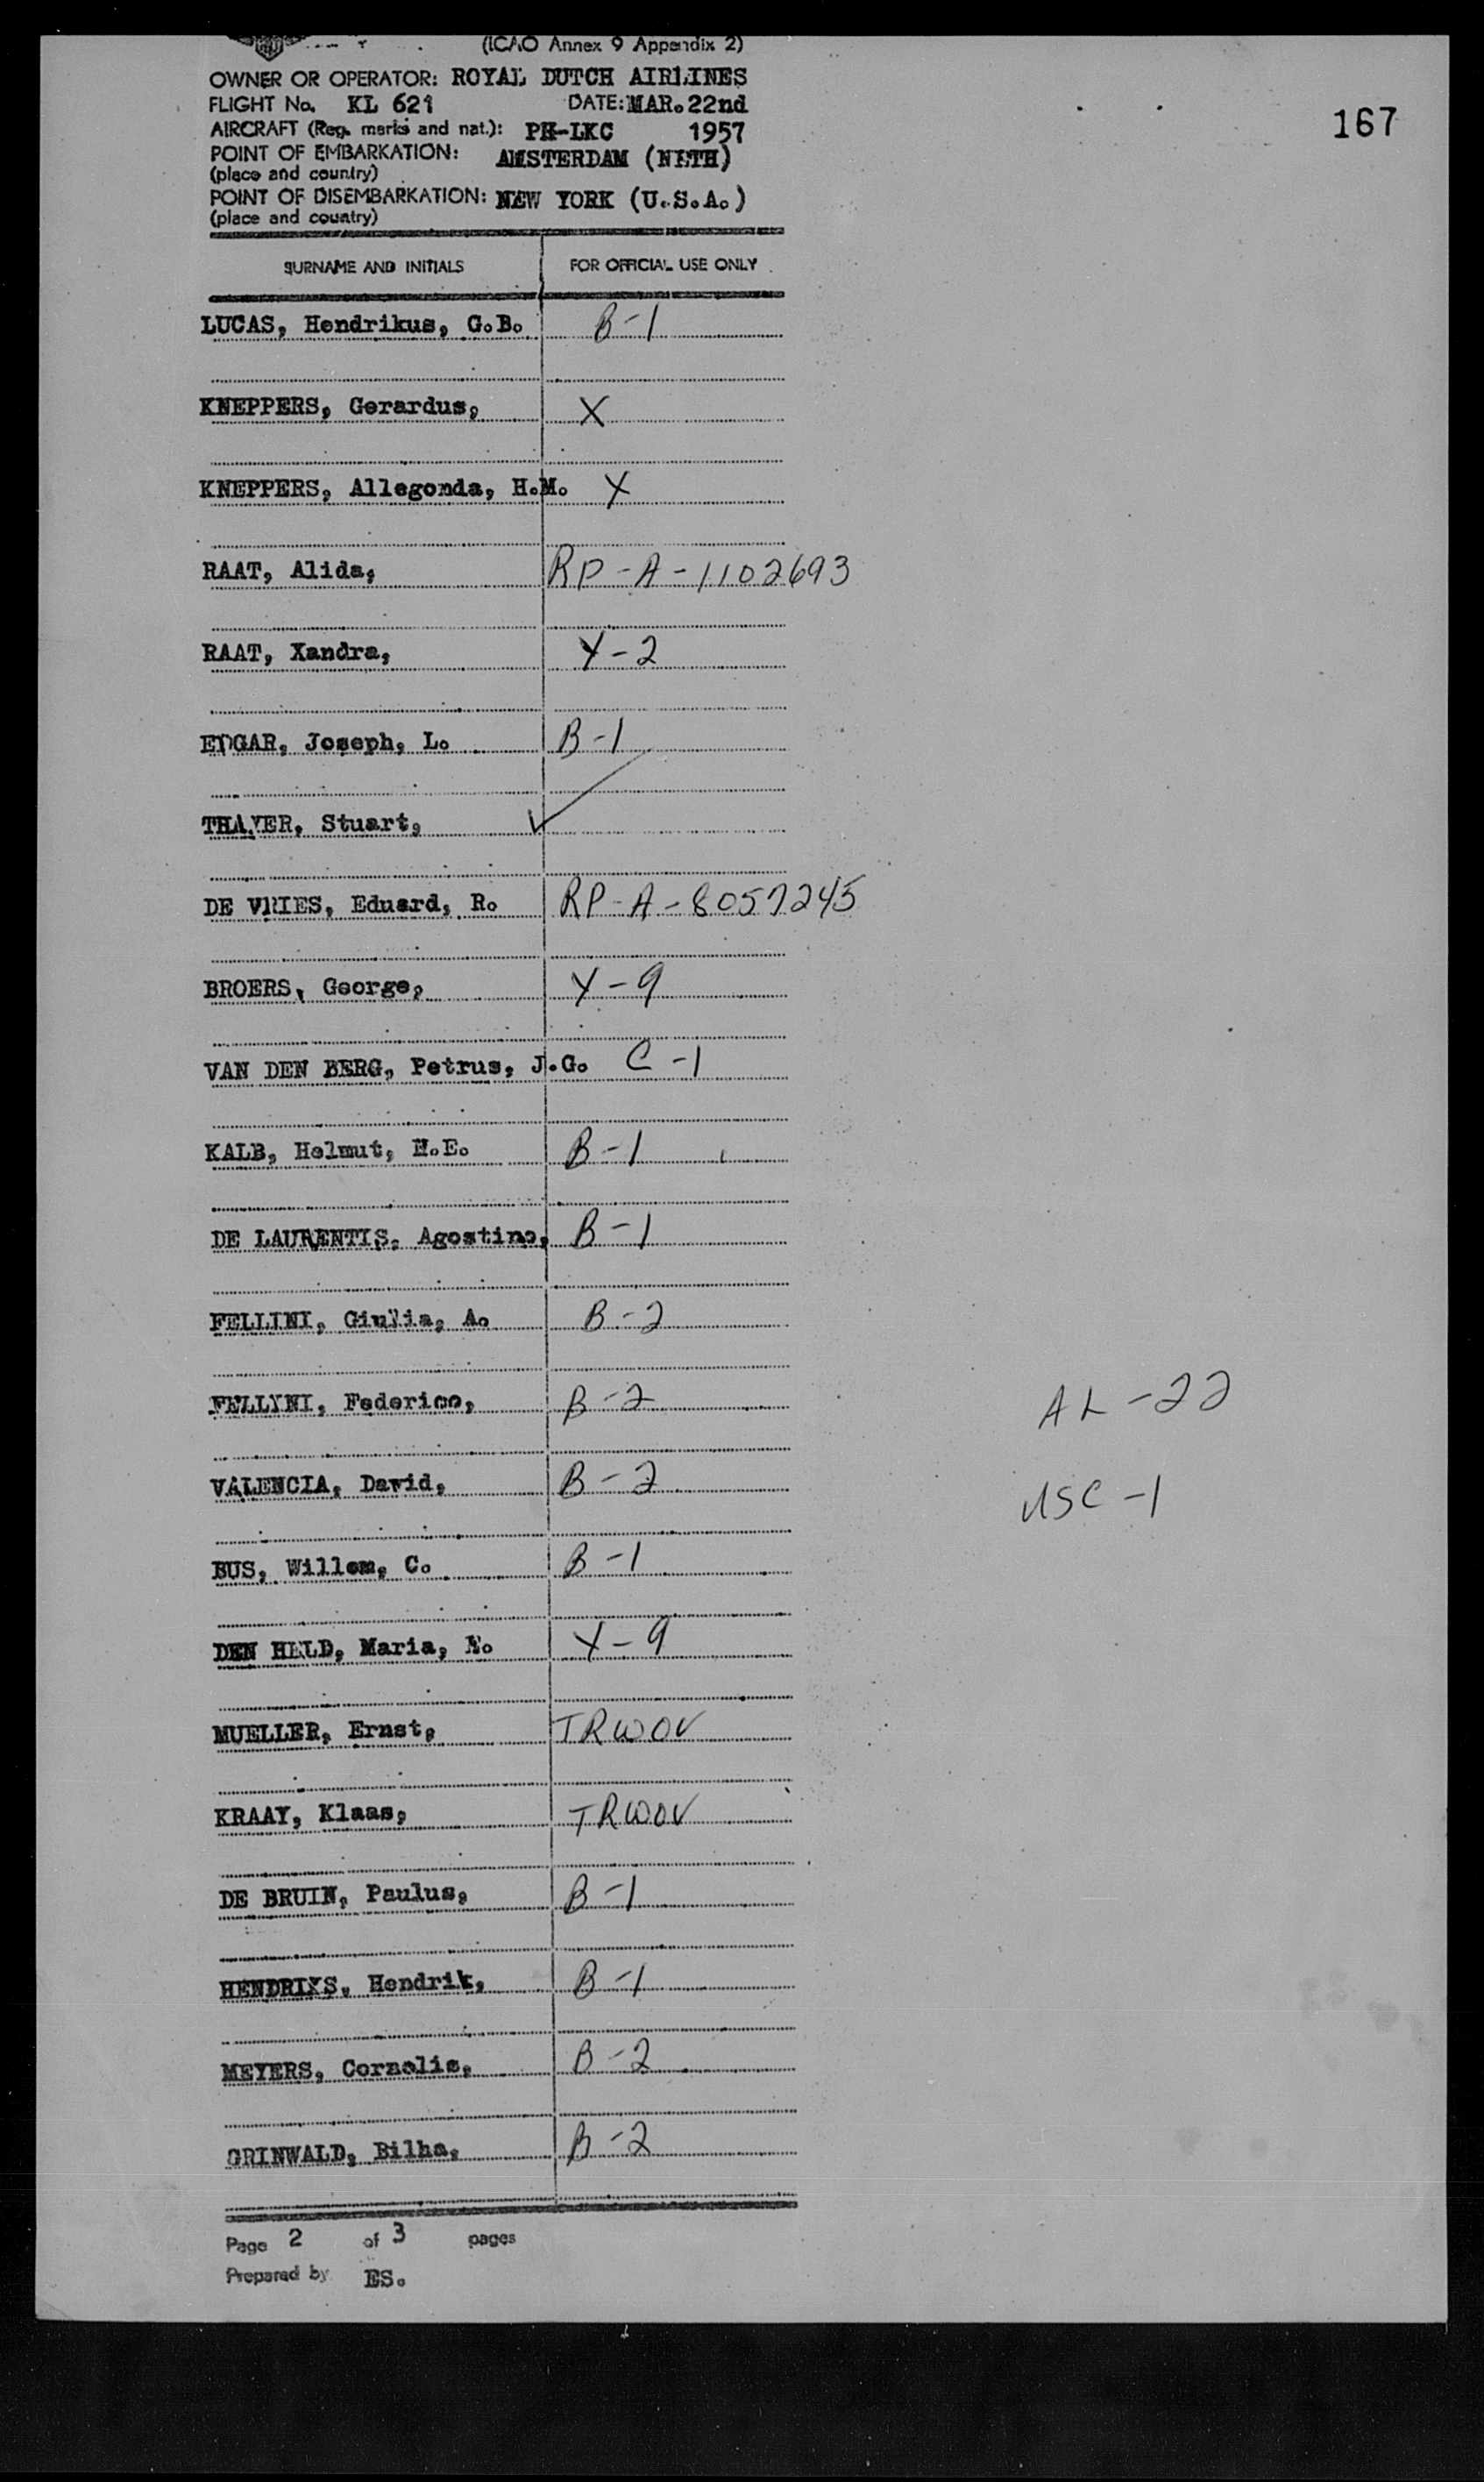 (ICAO Annex 9 Appendix 2)
OWNER OR OPERATOR: ROYAL DUTCH AIRLINES
FLIGHT No. KL 621 DATE: MAR. 22nd
AIRCRAFT (Reg. marks and nat.): PH-LKC 1957
167
POINT OF EMBARKATION: AMSTERDAM (NETH)
(place and country)
POINT OF DISEMBARKATION: NEW YORK (U.S.A.)
(place and country)
SURNAME AND INITIALS FOR OFFICIAL USE ONLY
LUCAS, Hendrikus, G.B. B-1
KNEPPERS, Gerardus, X
KNEPPERS, Allegonda, H.M. X
RAAT, Alida, RP-A-1102693
RAAT, Xandra, Y-2
EDGAR, Joseph, L. B-1
THAYER, Stuart, ✓
DE VRIES, Eduard, R. RP-A-8057245
BROERS, George, Y-9
VAN DEN BERG, Petrus, J.G. C-1
KALB, Helmut, H.E. B-1
DE LAURENTIS, Agostino, B-1
FELLINI, Giulia, A. B-2
FELLINI, Federico, B-2
AL-22
VALENCIA, David, B-2
USC-1
BUS, Willem, C. B-1
DEN HELD, Maria, N. Y-9
MUELLER, Ernst, TRWOV
KRAAY, Klaas, TRWOV
DE BRUIN, Paulus, B-1
HENDRIKS, Hendrik, B-1
MEYERS, Cornelis, B-2
GRINWALD, Bilha, B-2
Page 2 of 3 pages
Prepared by ES.